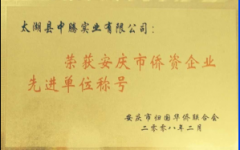 太湖县申腾实业有限公司：
荣获安庆市侨资企业
先进单位称号
安庆市归国华侨联合会
二零零八年二月